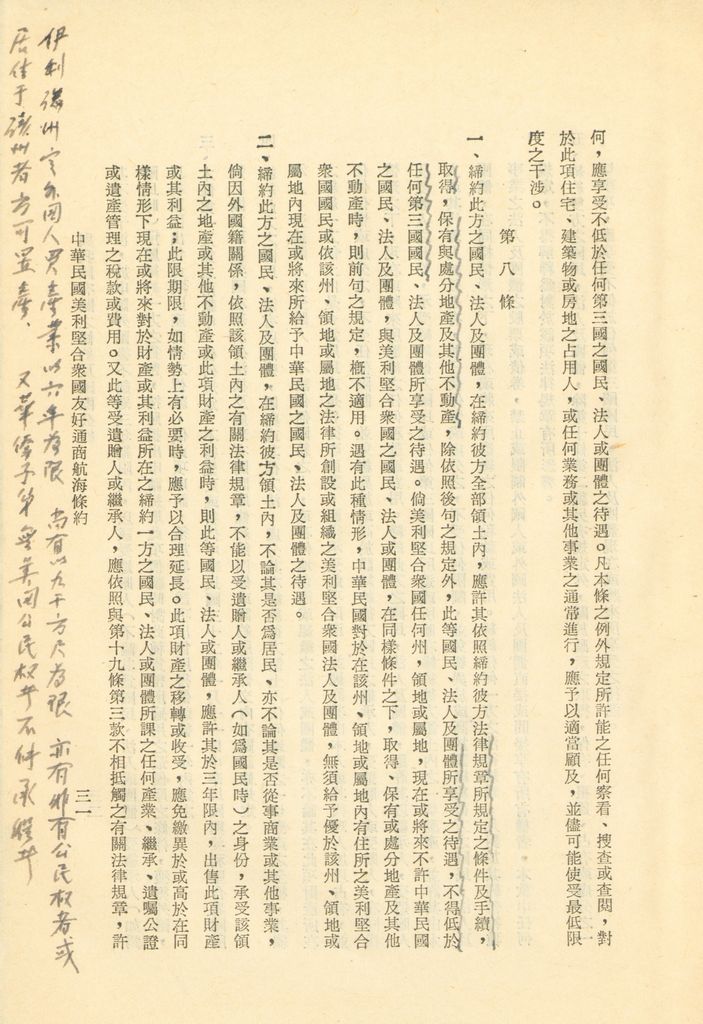 何，應享受不低於任何第三國之國民、法人或團體之待遇。凡本條之例外規定所許能之任何察看、搜查或查閱，對
於此項住宅、建築物或房地之占用人，或任何業務或其他事業之通常進行，應予以適當顧及，並儘可能使受最低限
度之干涉。
第八條
一、締約此方之國民、法人及團體，在締約彼方全部領土內，應許其依照締約彼方法律規章所規定之條件及手續，
取得，保有與處分地產及其他不動產，除依照後句之規定外，此等國民、法人及團體所享受之待遇，不得低於
任何第三國國民、法人及團體所享受之待遇。倘美利堅合衆國任何州，領地或屬地，現在或將來不許中華民國
之國民、法人及團體，與美利堅合衆國之國民、法人或團體，在同樣條件之下，取得、保有或處分地產及其他
不動產時，則前句之規定，概不適用。遇有此種情形，中華民國對於在該州、領地或屬地內有住所之美利堅合
衆國國民或依該州、領地或屬地之法律所創設或組織之美利堅合衆國法人及團體，無須給予優於該州、領地或
屬地內現在或將來所給予中華民國之國民、法人及團體之待遇。
二、締約此方之國民、法人及團體，在締約彼方領土內，不論其是否爲居民、亦不論其是否從事商業或其他事業，
倘因外國籍關係，依照該領土內之有關法律規章，不能以受遺贈人或繼承人（如爲國民時）之身份，承受該領
土內之地產或其他不動產或此項財產之利益時，則此等國民、法人或團體，應許其於三年限內，出售此項財產
或其利益；此限期限，如情勢上有必要時，應予以合理延長。此項財產之移轉或收受，應免繳異於或高於在同
樣情形下現在或將來對於財產或其利益所在之締約一方之國民、法人或團體所課之任何產業、繼承、遺囑公證
或遺產管理之稅款或費用。又此等受遺贈人或繼承人，應依照與第十九條第三款不相抵觸之有關法律規章，許
中華民國美利堅合衆國友好通商航海條約
三一
伊利諾州定外國人買產業以六年爲限 尚有以九千方尺爲限 亦有非有公民权者或
居住于該州者方可置產、又華僑子弟無美國公民权者不得承繼